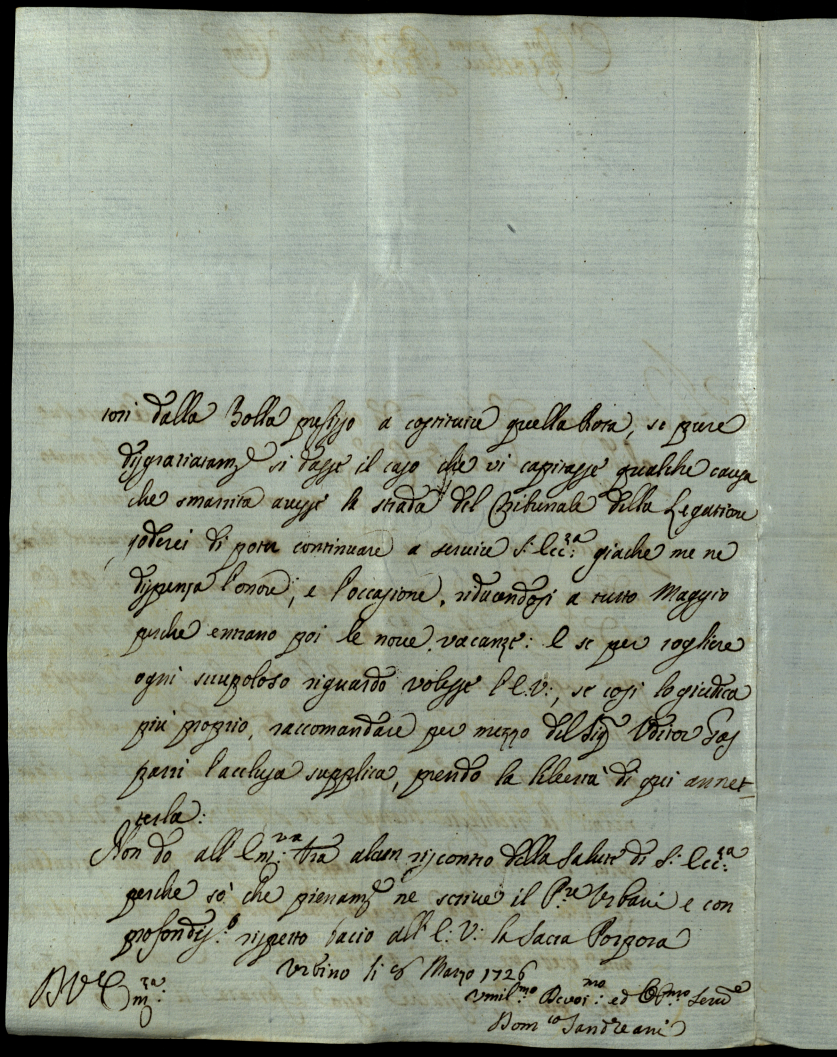 toni dalla Bolla prefisso a costituire quella Rota, se pure
disgratiatam.e si dasse il caso che vi capitasse qualche causa
che smarrita avesse la strada del Tribunale della Legatione
goderei di poter continuare a servire S: Ecc:za giache me ne
dispensa l'onore, e l'occasione, riducendosi a tutto Maggio
perche entrano poi le nove vacanze: E se per togliere
ogni scrupoloso riguardo volesse l'E:V:, se cosi lo giudica
più proprio, raccomandare per mezzo del Sig.e Uditor Gas
parri l'acclusa supplica, prendo la libertà di qui annet
terla:
Non do all'Em:za V'ra alcun riscontro della Salute di S: Ecc:za
perche sò che pienam.e ne scrive il P.re Urbani e con
profondis:o rispetto bacio all'E: V: la Sacra Porpora
Urbino li 6 Marzo 1726
Umil.mo Devot:mo ed Obl.mo Serv.e
Dom.co Sandreani